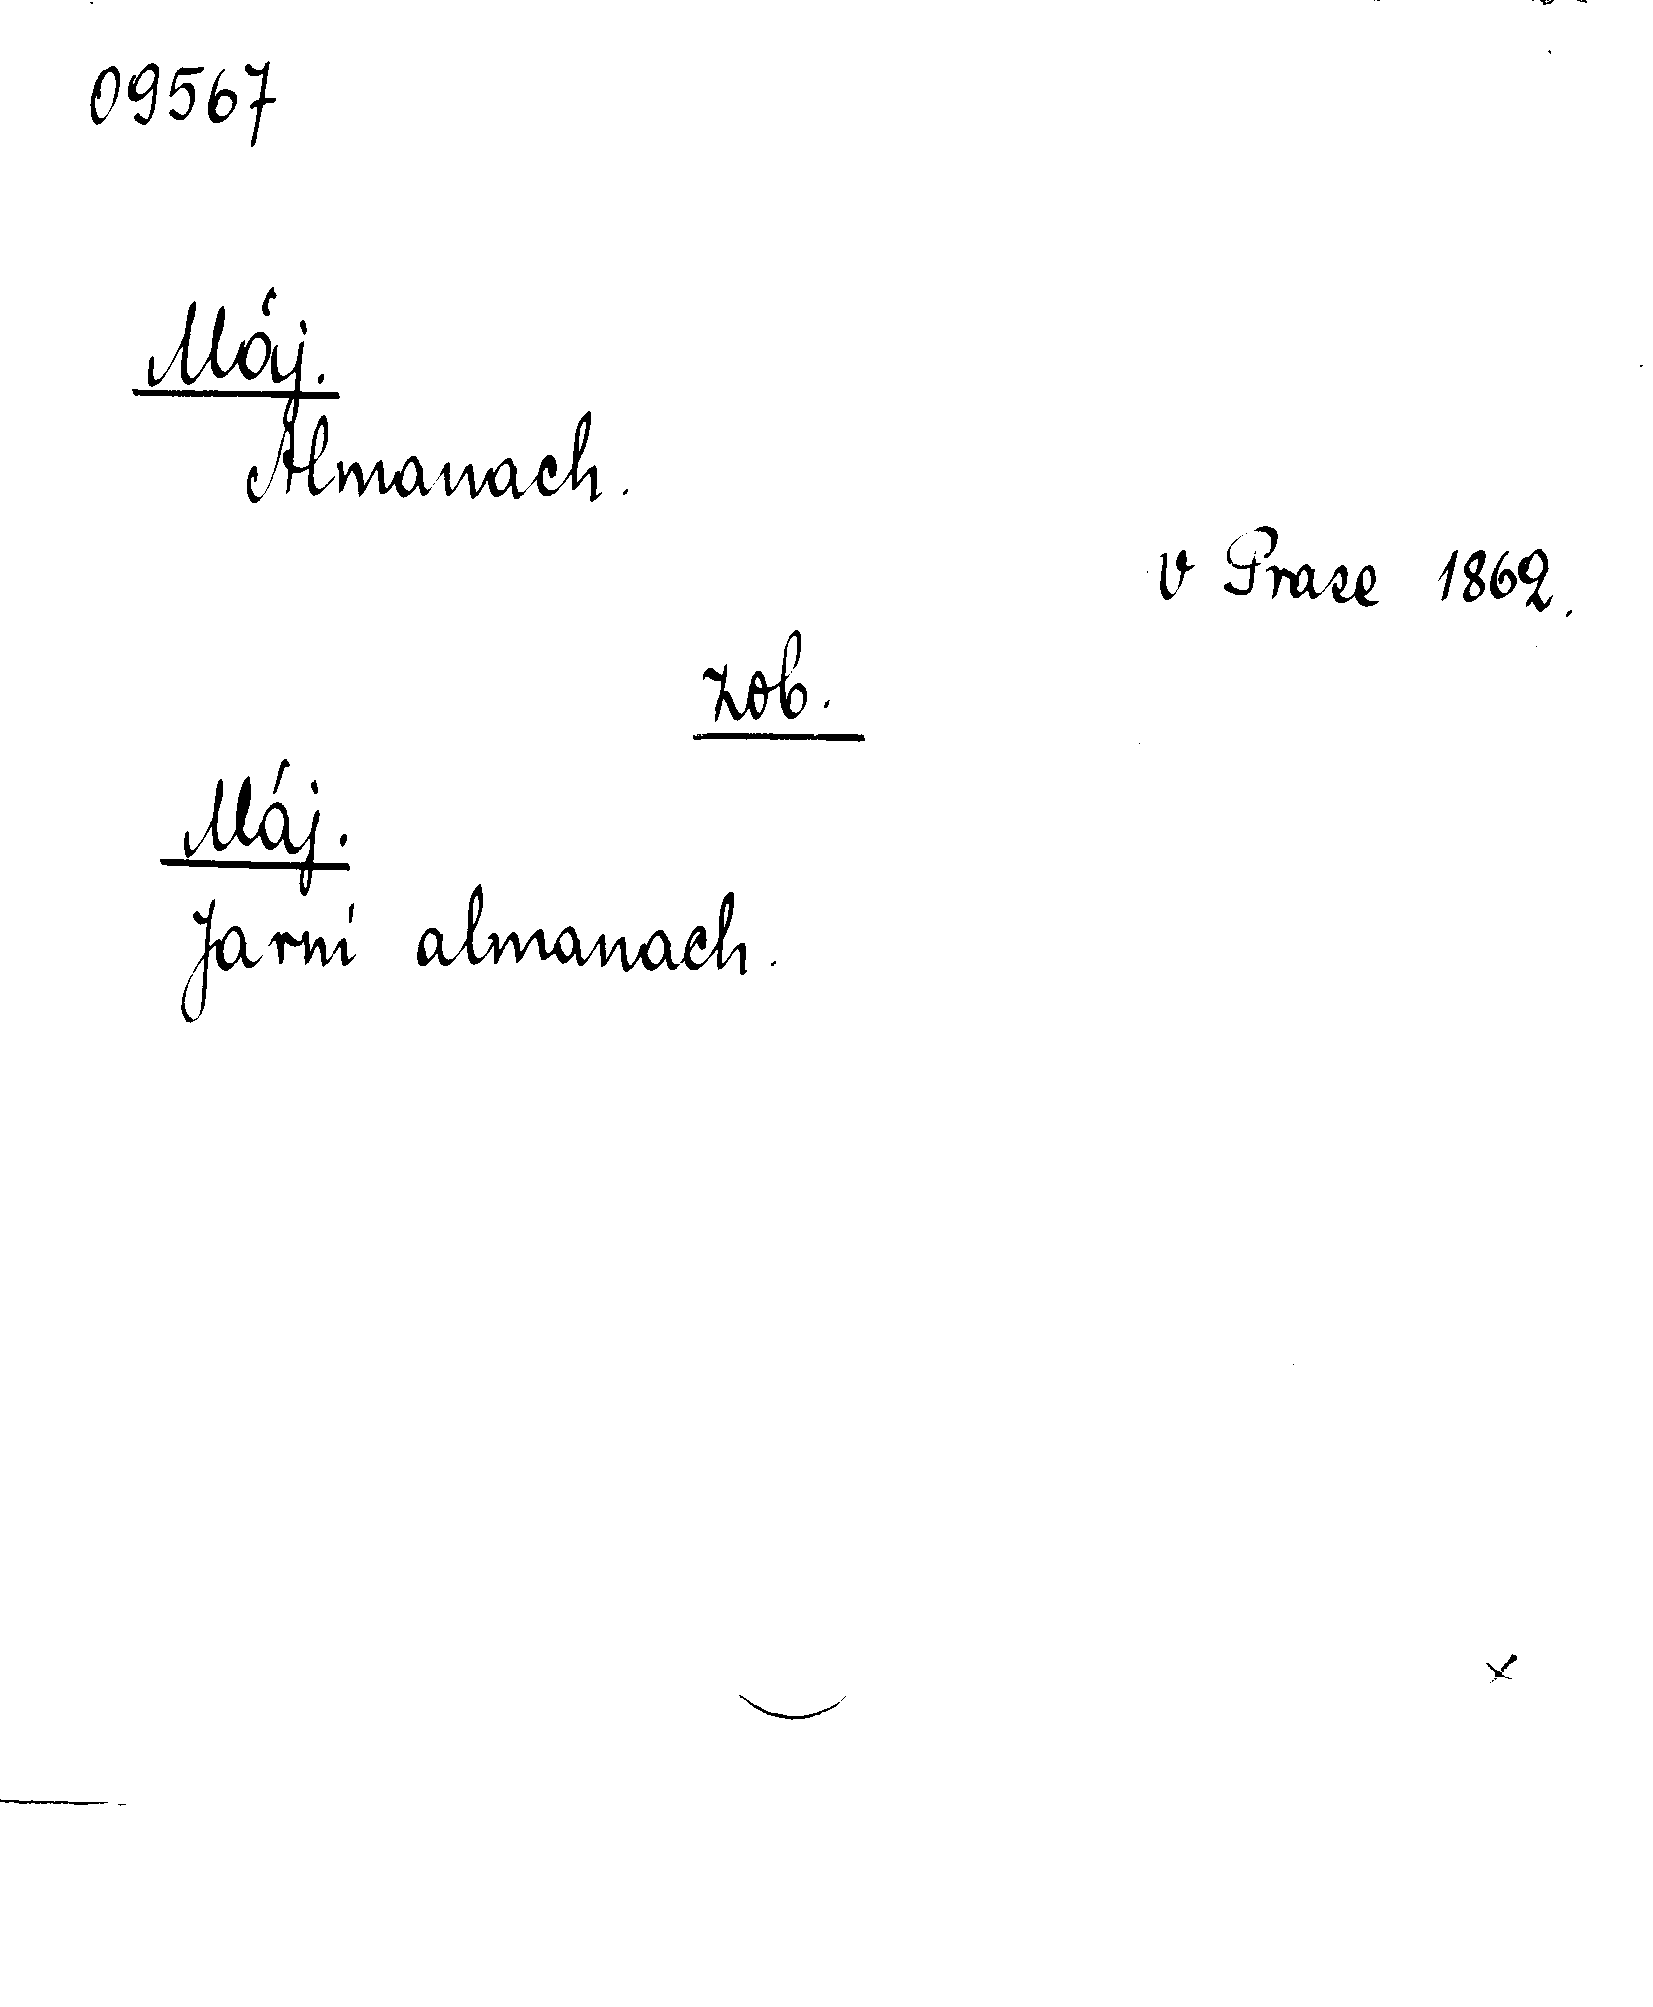 09567
Máj.
Almanach.
v Praze 1862.
zob.
Máj.
Jarní almanach.